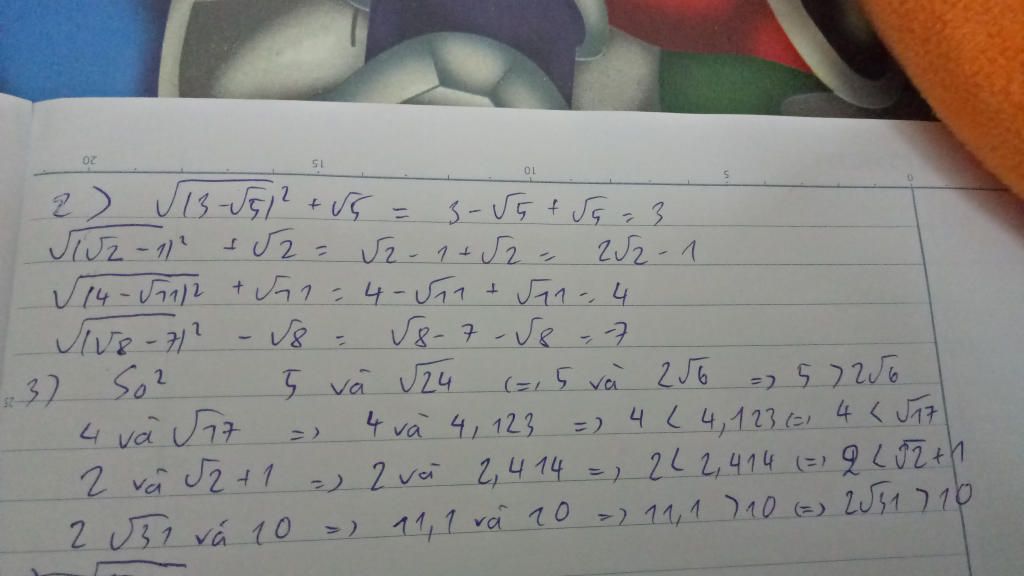 20 15 10 5 0
2) √(3-√5)² + √5 = 3-√5 + √5 = 3
√(√2 - 1)² + √2 = √2 - 1 + √2 = 2√2 - 1
√(4 - √11)² + √11 = 4 - √11 + √11 = 4
√(√8 - 7)² - √8 = √8 - 7 - √8 = -7
3) So² 5 và √24 (=) 5 và 2√6 => 5 > 2√6
25
4 và √17 => 4 và 4,123 => 4 < 4,123 (=) 4 < √17
2 và √2 + 1 => 2 và 2,414 => 2 < 2,414 (=) 2 < √2 + 1
2√31 và 10 => 11,1 và 10 => 11,1 > 10 (=) 2√31 > 10